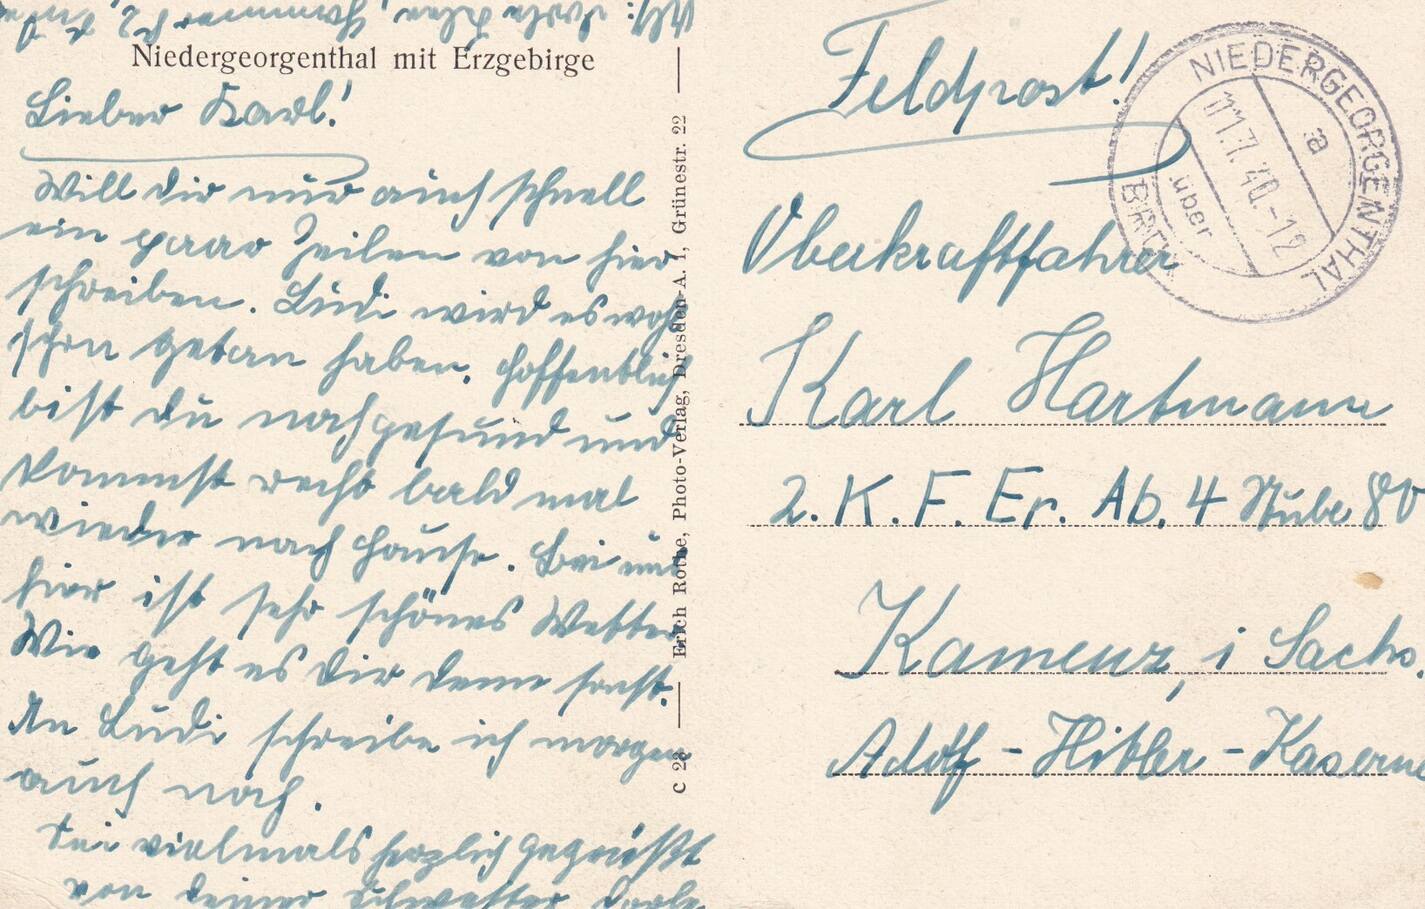 Niedergeorgenthal mit Erzgebirge
Lieber Karl!
Will dir nur auch schnell
ein paar Zeilen von hier
schreiben. Ludi wird es wohl
schon getan haben. Hoffentlich
bist du noch gesund und
kommst recht bald mal
wieder nach Hause. Bei uns
hier ist sehr schönes Wetter.
Wie geht es dir denn sonst.
An Ludi schreibe ich morgen
auch noch.
Sei vielmals herzlich gegrüßt
von deiner Schwester
C 23 Erich Rothe, Photo-Verlag, Dresden-A. 1, Grünestr. 22
Feldpost!
NIEDERGEORGENTHAL
über
BRÜX
a
7.40.-12
Oberkraftfahrer
Karl Hartmann
2. K. F. Er. Ab. 4 Stube 80
Kamenz, i Sachs.
Adolf-Hitler-Kaserne